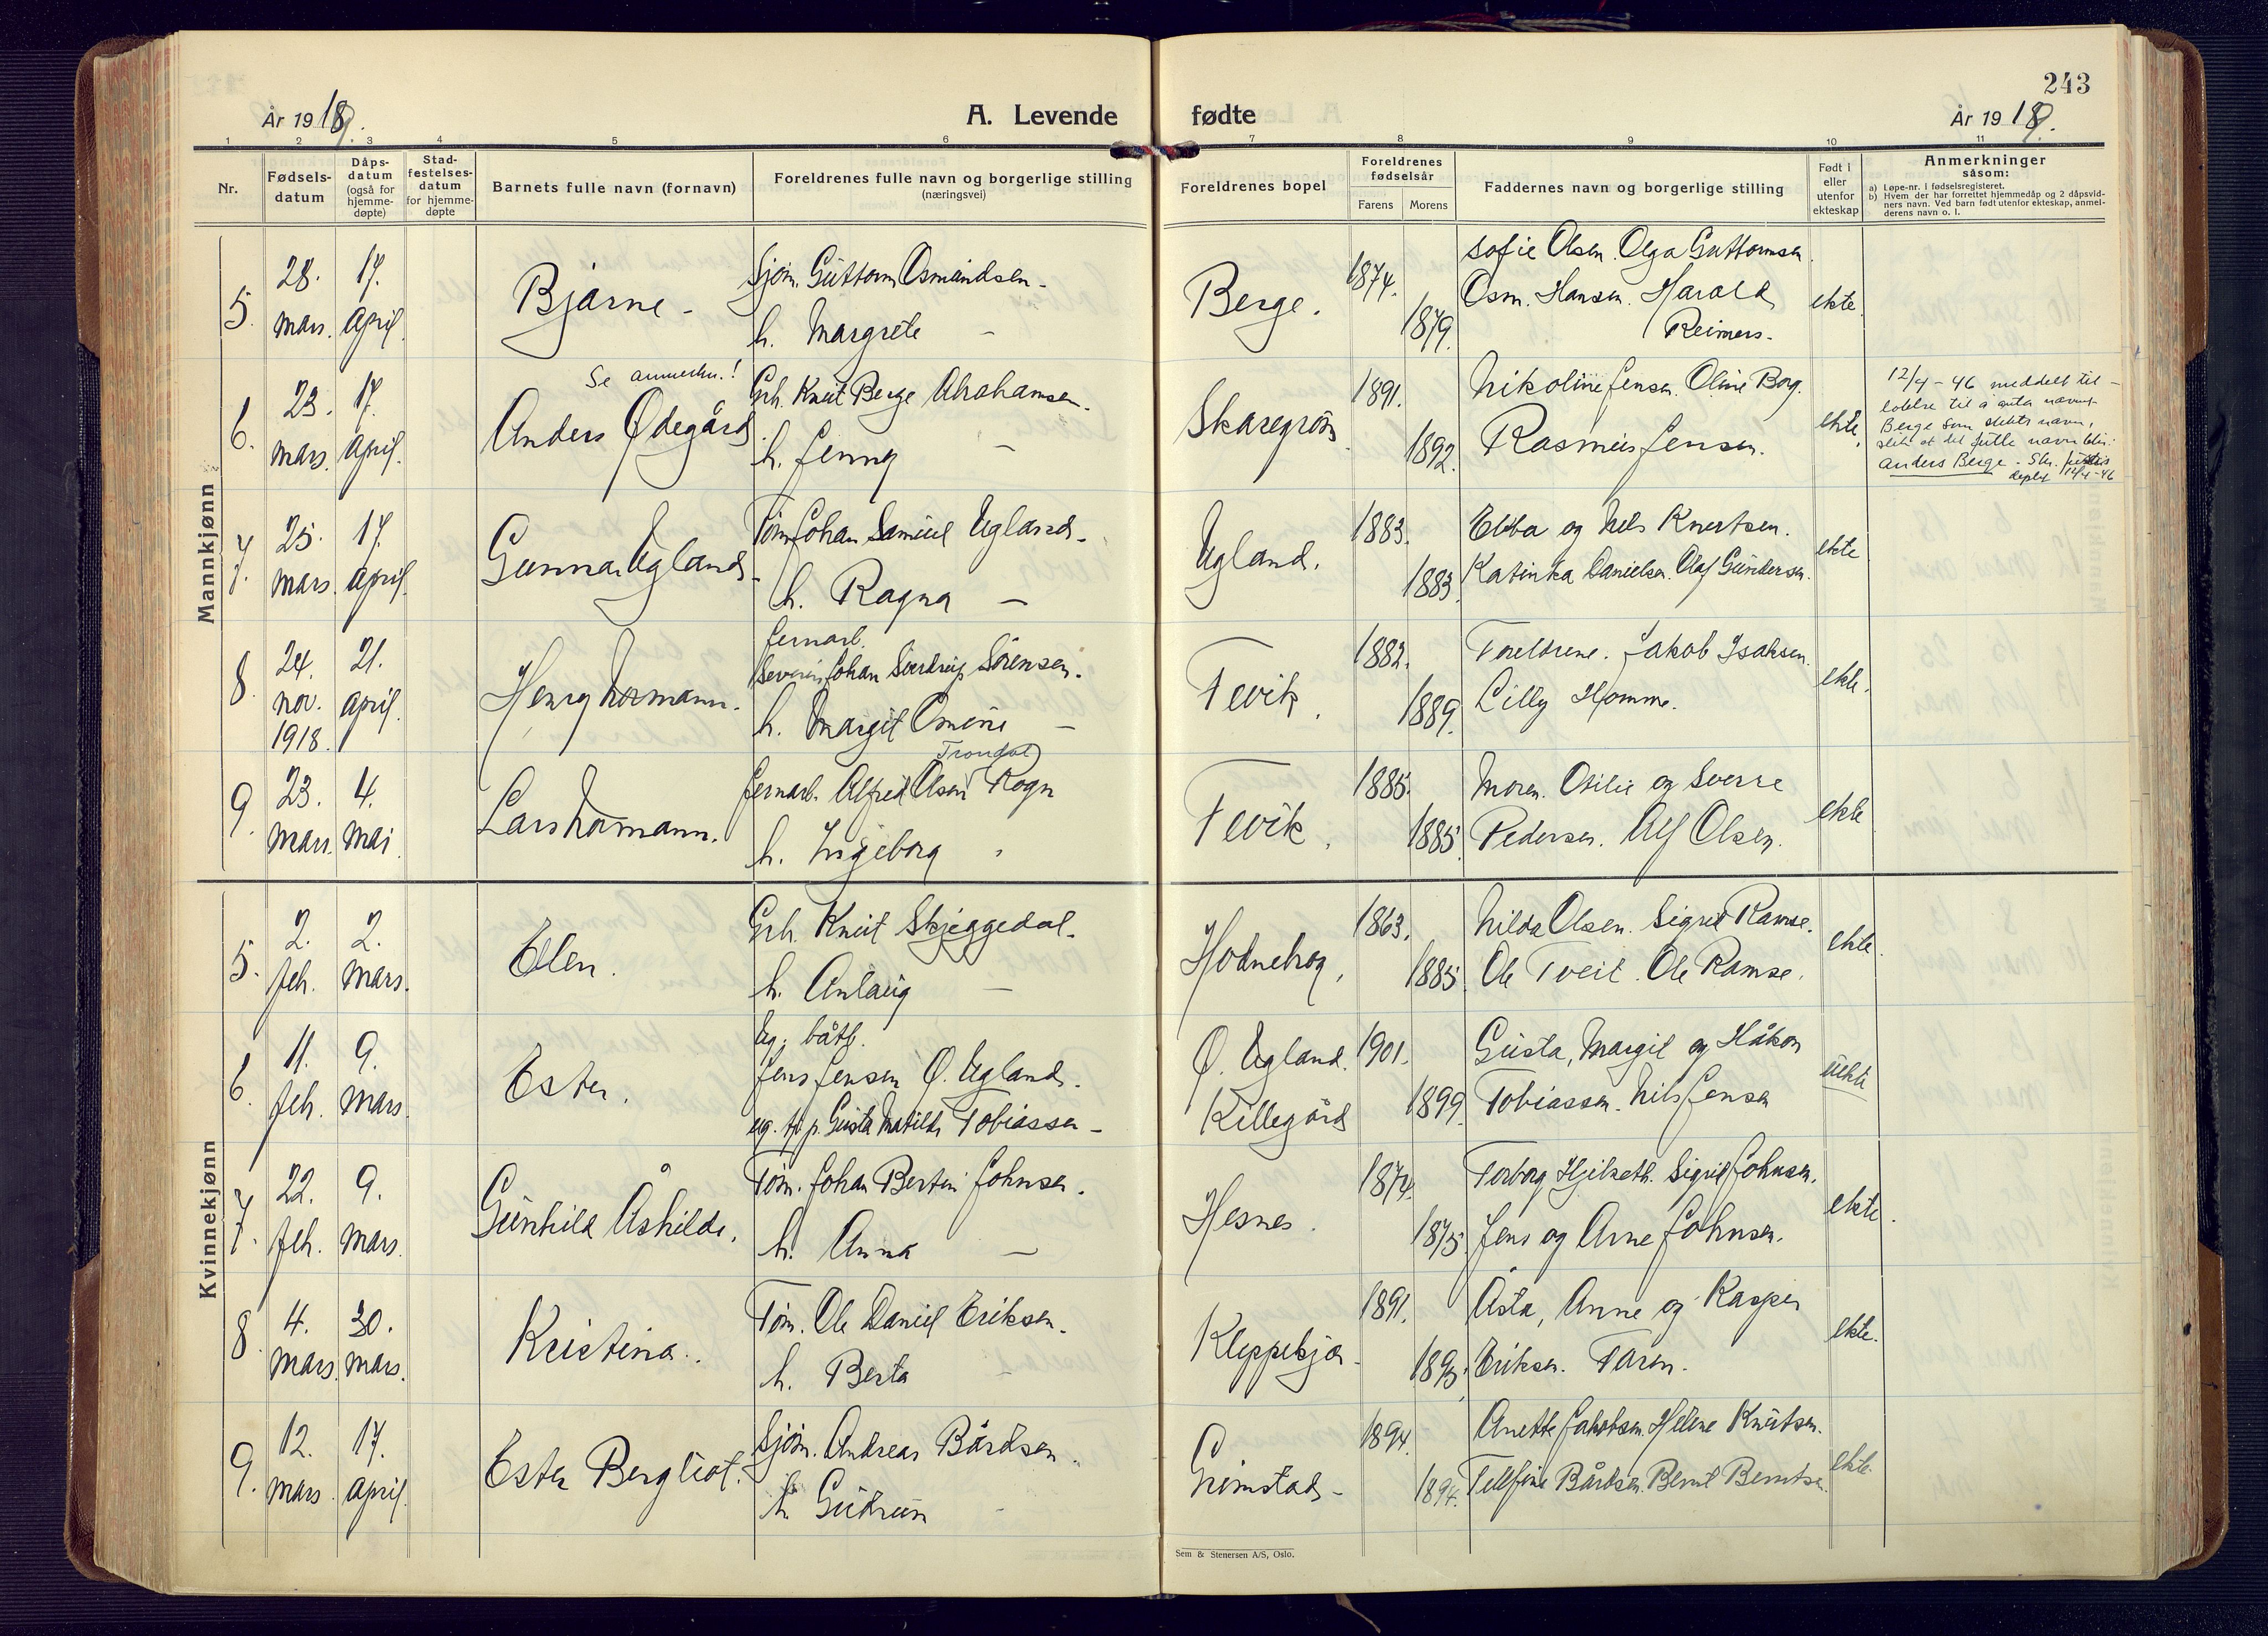 243
År 1919.
A. Levende
fødte
År 1919.
1 2 3 4 5 6 7 8 9 10 11
Nr.
Fødsels-
datum
Dåps-
datum
(også for
hjemme-
døpte)
Stad-
festelses-
datum
for hjemme-
døpte
Barnets fulle navn (fornavn)
Foreldrenes fulle navn og borgerlige stilling
(næringsvei)
Foreldrenes bopel
Foreldrenes
fødselsår
Farens Morens
Faddernes navn og borgerlige stilling
Født i
eller
utenfor
ekteskap
Anmerkninger
såsom:
a) Løpe-nr. i fødselsregisteret.
b) Hvem der har forrettet hjemmedåp og 2 dåpsvid-
ners navn. Ved barn født utenfor ekteskap, anmel-
derens navn o. l.
Mannkjønn
5. 28. mars. 17. april. Bjarne -
Sjøm. Guttorm Osmundsen -
h. Margrete -
Berge. 1874. 1879.
Sofie Olsen. Olga Guttormsen.
Osm. Hansen. Harald
Reimers.
ekte.
Se anmerkn.!
6. 23. mars. 17. april. Anders Ødegård.
Grb. Knut Berge Abrahamsen.
h. Jenny -
Skaregrøm 1891. 1892.
Nikoline Jensen. Oline Borg.
Rasmus Jensen.
ekte.
12/4-46 meddelt til-
latelse til å anta navnet
Berge som slekts navn,
slik at det fulle navn blir:
Anders Berge.
7. 25. mars. 17. april. Gunnar Ugland.
Tøm. Johan Samuel Ugland -
h. Ragna -
Ugland. 1883. 1883.
Ebba og Nels Knutsen.
Katinka Danielsen. Olaf Gundersen.
ekte
8. 24. nov. 1918. 21. april. Henry Normann.
Jernarb.
Severin Johan Sverdrup Sørensen.
h. Margit Omine -
Fevik. 1882. 1889.
Foreldrene. Jakob Isaksen.
Lilly Homme.
ekte.
9. 23. mars. 4. mai. Lars Normann.
Trondal
Jernarb. Alfred Olsen Rogn
h. Ingeborg
Fevik. 1885. 1885.
Moren. Otilie og Sverre
Pedersen. Alf Olsen.
ekte
Kvinnekjønn
5. 2. feb. 2. mars. Elen.
Grb. Knut Skjeggedal.
h. Anlaug -
Hodnebrog. 1863. 1885.
Nilda Olsen. Sigrid Ramse.
Ole Tveit. Ole Ramse.
ekte.
6. 11. feb. 9. mars. Ester.
Ug. båtb.
Jens Jensen Ø. Ugland.
ug. tj.p. Gusta Matilde Tobiassen -
Ø. Ugland. 1901.
Killegård 1899.
Gusta, Margit og Håkon
Tobiassen. Nils Jensen
uekte
7. 22. feb. 9. mars. Gunhild Åshilde.
Tøm. Johan Bertin Johnsen.
h. Anna -
Hesnes. 1874. 1875.
Torborg Hjilseth. Sigrid Johnsen.
Jens og Arne Johnsen.
ekte.
8. 4. mars. 30. mars. Kristina.
Tøm. Ole Daniel Eriksen.
h. Berta -
Kleppekjær. 1891. 1893.
Åsta, Anne og Kasper
Eriksen. Faren.
ekte.
9. 12. mars. 17. april. Ester Bergliot.
Sjøm. Andreas Bårdsen.
h. Gudrun -
Grimstad - 1894. 1894.
Anette Jakobsen. Helene Knutsen.
Tellefine Bårdsen. Bernt Berntsen.
ekte.
Sem & Stenersen A/S, Oslo.